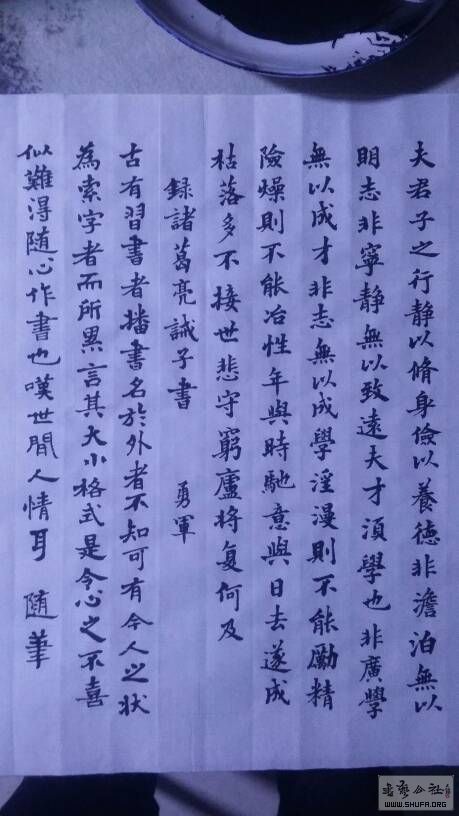 夫君子之行静以脩身儉以養德非澹泊無以
明志非寧静無以致遠夫才須學也非廣學
無以成才非志無以成學淫漫則不能勵精
險燥則不能冶性年與時馳意與日去遂成
枯落多不接世悲守窮廬将复何及
録諸葛亮誡子書 勇軍
古有習書者播書名於外者不知可有今人之状
為索字者而所累言其大小格式是令心之不喜
似難得随心作書也嘆世間人情耳 随筆
WWW.SHUFA.ORG